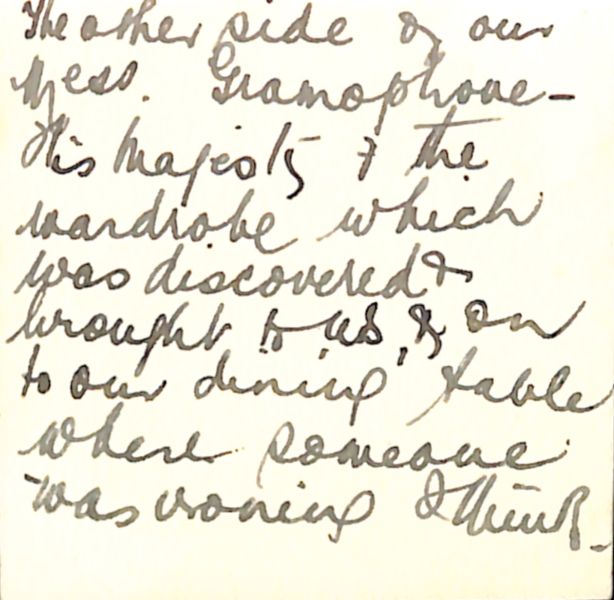 The other side of our
Mess. Gramophone -
His Majesty & the
wardrobe which
was discovered &
brought to us, & on
to our dining table
where someone
was ironing I think -